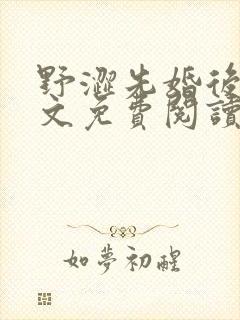 野澀先婚後
文免費閱讀
如夢初醒